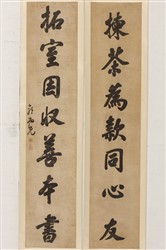 揀茶為款同心友
拓室因収善本書